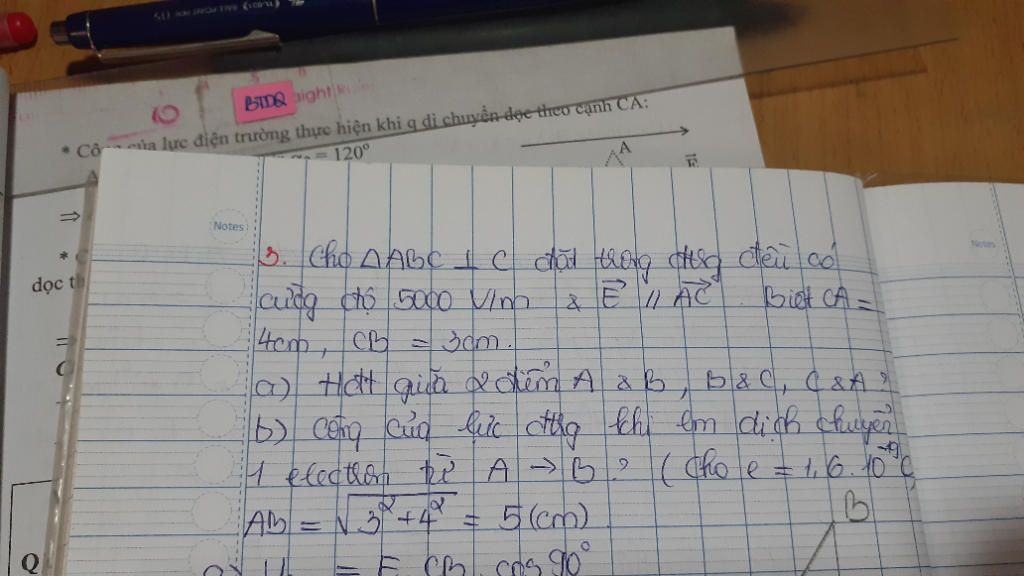 BTDQ
* Cô của lực điện trường thực hiện khi q di chuyển dọc theo cạnh CA:
= 120°
A
E
Notes
Notes
⇒
dọc th
3. Cho △ABC ⊥ C đặt trong đtrg đều có
cường độ 5000 V/m & E⃗ // AC⃗. Biết CA =
4cm, CB = 3cm.
a) Hđt giữa 2 điểm A & B, B & C, C & A?
b) Công của lực đtrg khi em dịch chuyển
1 electron từ A → B? (Cho e = 1,6.10⁻¹⁹C
AB = √3²+4² = 5 (cm)
B
= E. CB. cos 90°
Q